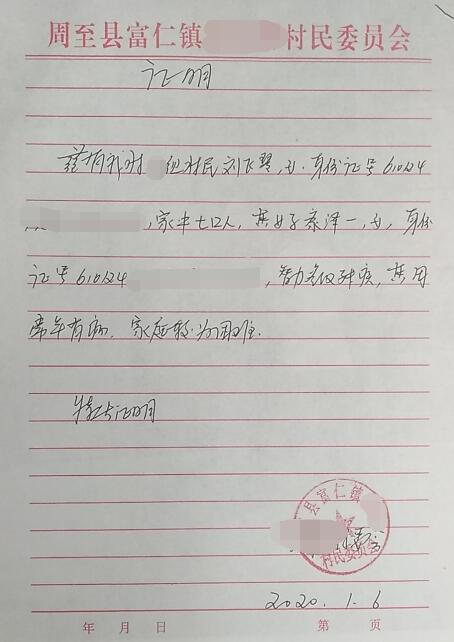 周至县富仁镇 村民委员会
证明
兹有我村 组村民刘飞琴,女,身份证号610124
,家中七口人,其女子秦泽一,女,身份
证号610124 ,智力 级残疾,其因
常年有病,家庭较为困难.
特此证明
县富仁镇
村民委员会
2020.1.6
年 月 日 第 页